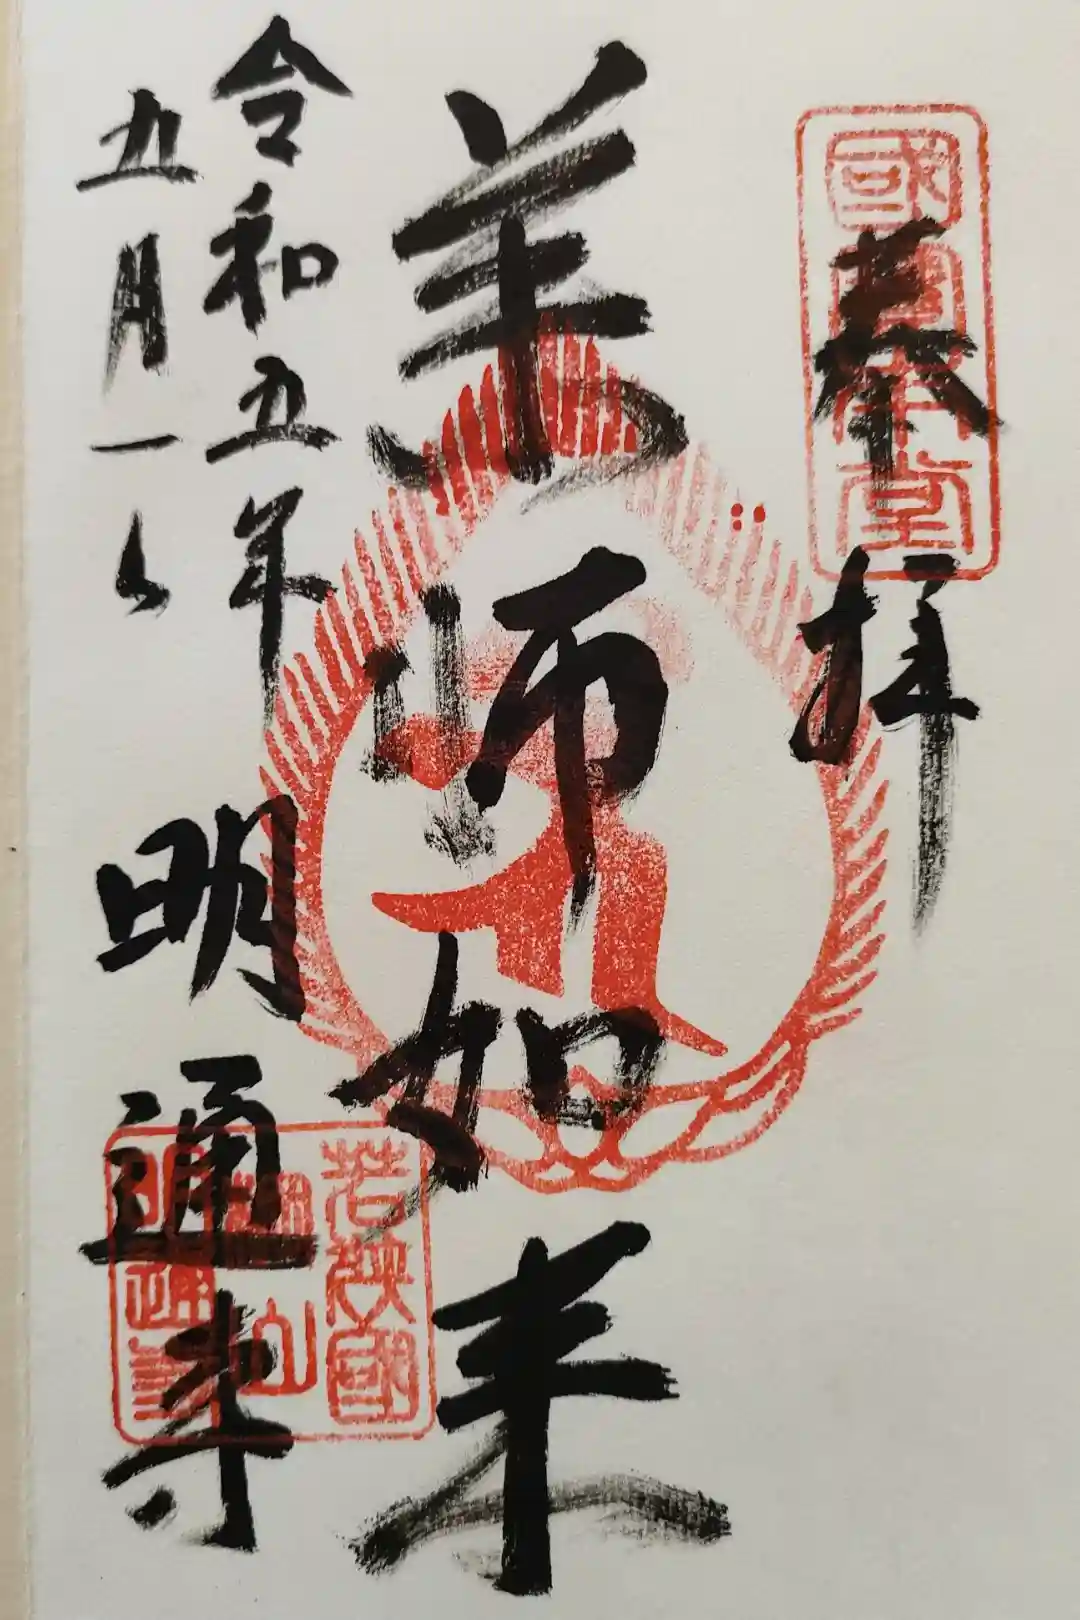 奉拝
國寶本堂
薬師如来
令和五年
五月一日
明通寺
若狹國
棡山
明通寺